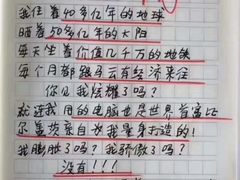 我住着40多亿年的地球
晒着50多亿年的太阳
每天坐着价值几千万的地铁
每个月都跟马云有经济来往
你见我炫耀了吗?
就连我用的电脑也是世界首富比
尔盖茨亲自为我量身打造的!
我膨胀了吗?我骄傲了吗?
没有!!!